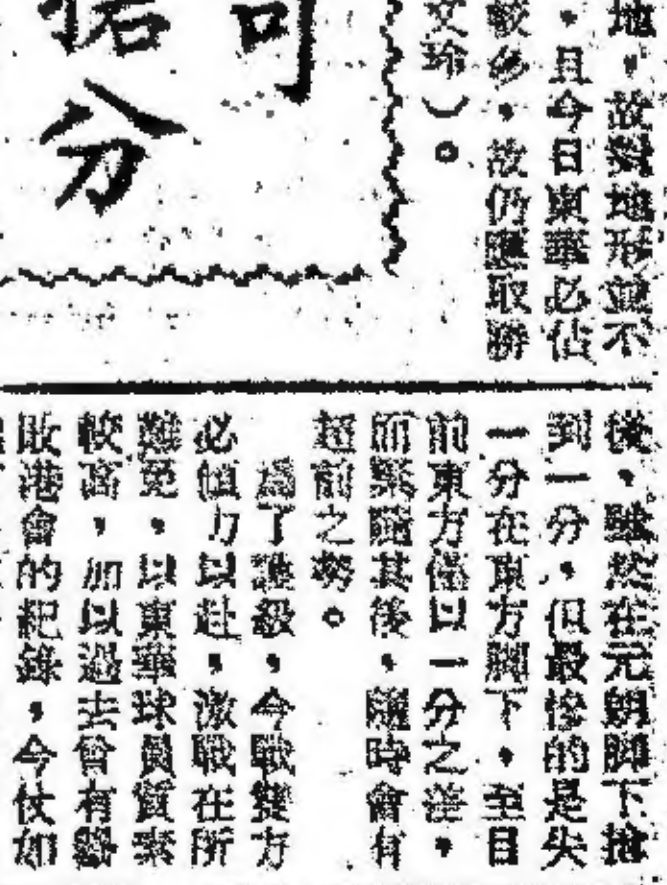 地，故對地形並不
，且今日東華必佔
較多，故仍應取勝
文珍）。
可
分
後，雖然在元朗脚下搶
到一分，但最慘的是失
一分在東方脚下，至目
前東方僅以一分之差，
而緊隨其後，隨時會有
超前之勢。
爲了護級，今戰雙方
必傾力以赴，激戰在所
難免，以東華球員質素
較高，加以過去曾有擊
敗港會的紀錄，今仗如